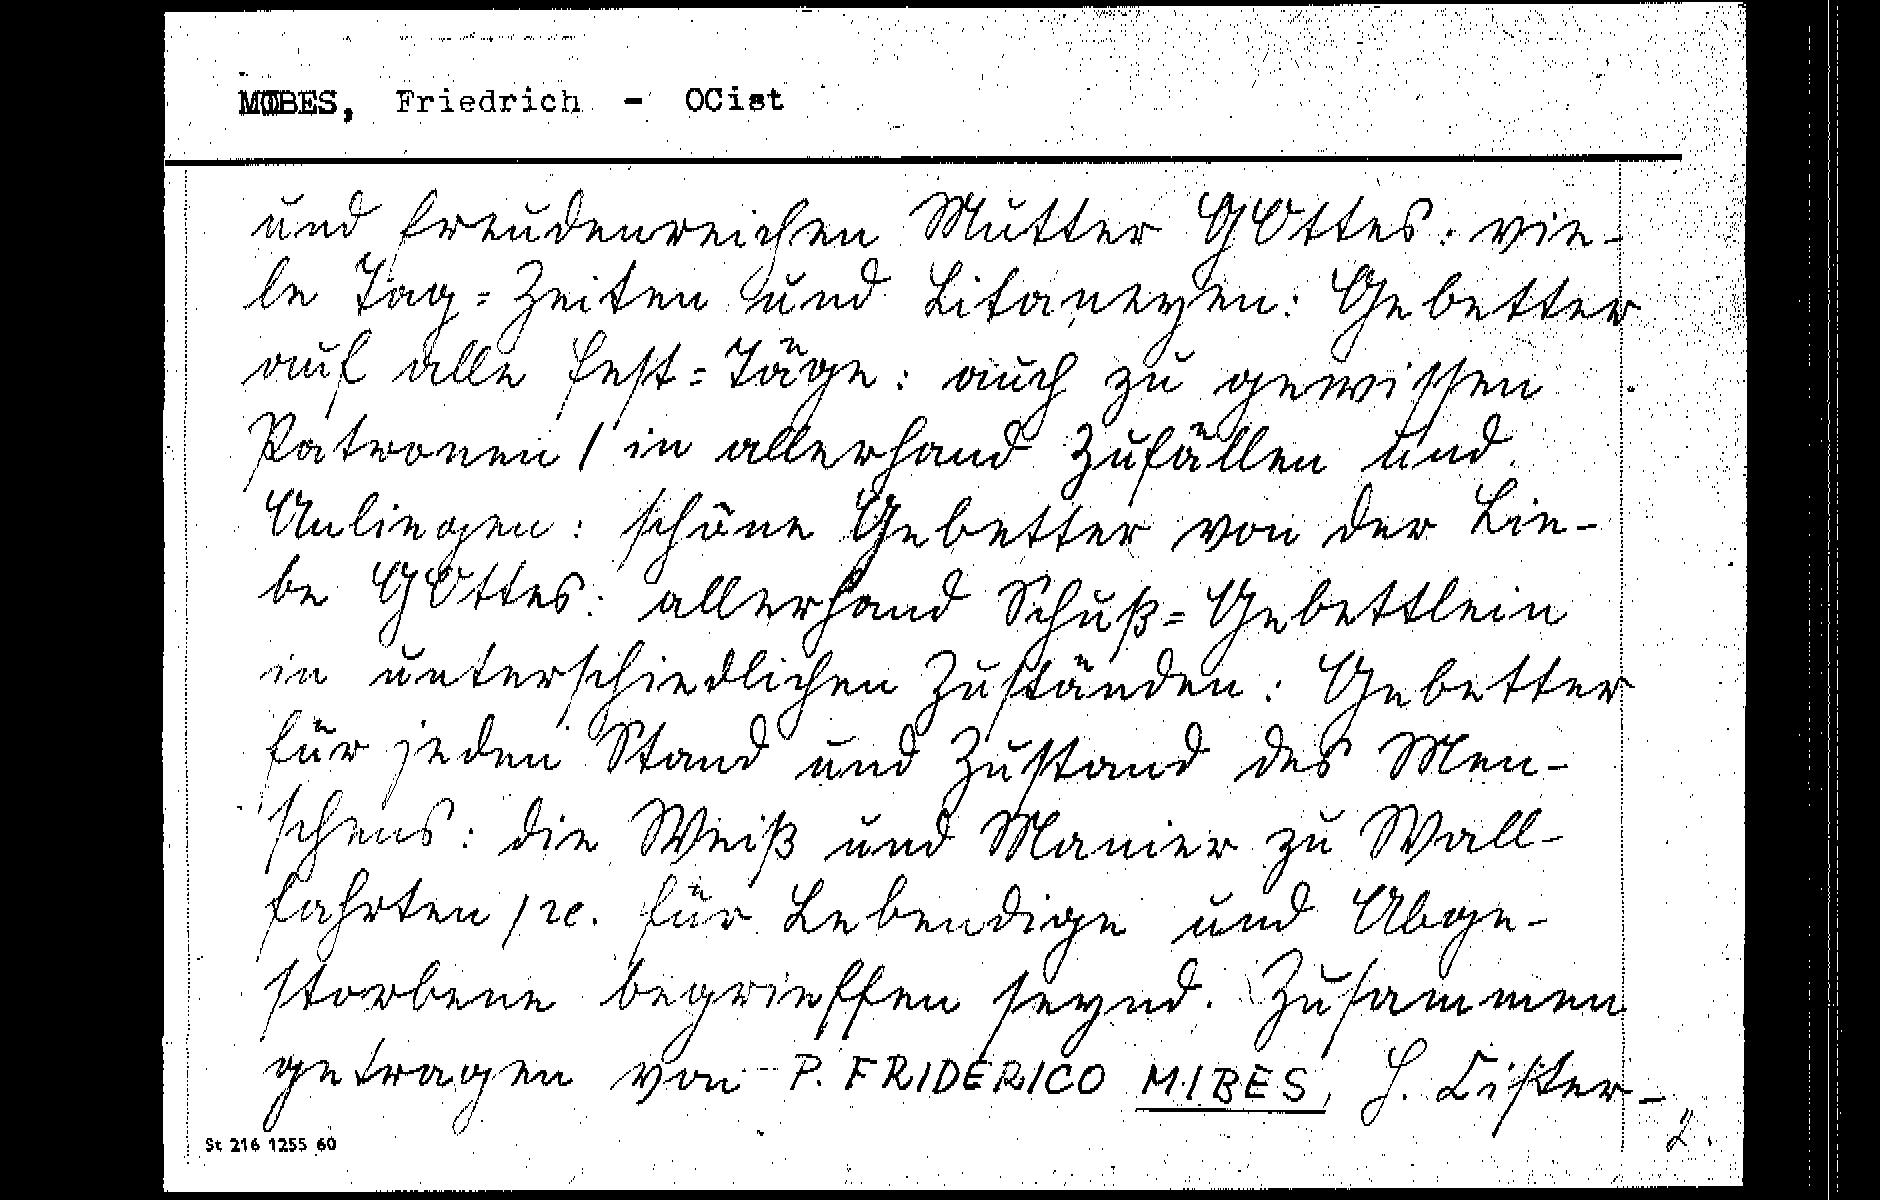 MIBES, Friedrich - OCist
und freudenreichen Mutter GOttes: vie-
le Tag=Zeiten und Litaneyen: Gebetter
auf alle Fest=Täge: auch zu gewissen
Patronen / in allerhand Zufällen und
Anliegen: schöne Gebetter von der Lie-
be GOttes: allerhand Schuß=Gebettlein
in unterschiedlichen Zuständen: Gebetter
für jeden Stand und Zustand des Men-
schens: die Weiß und Manier zu Wall-
fahrten / ꝛc. für Lebendige und Abge-
storbene begrieffen seynd. Zusammen
getragen von P. FRIDERICO MIBES, H. Cister-
St 216 1255 60
2.